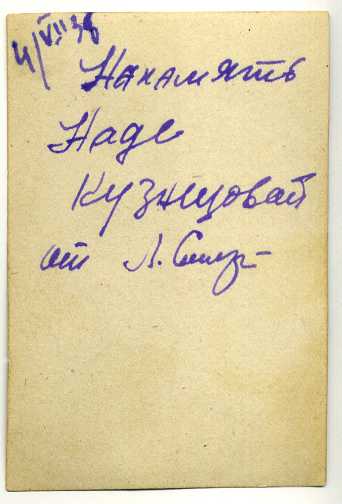 4/VII 38
Напамять
Наде
Кузнецовай
от Л.